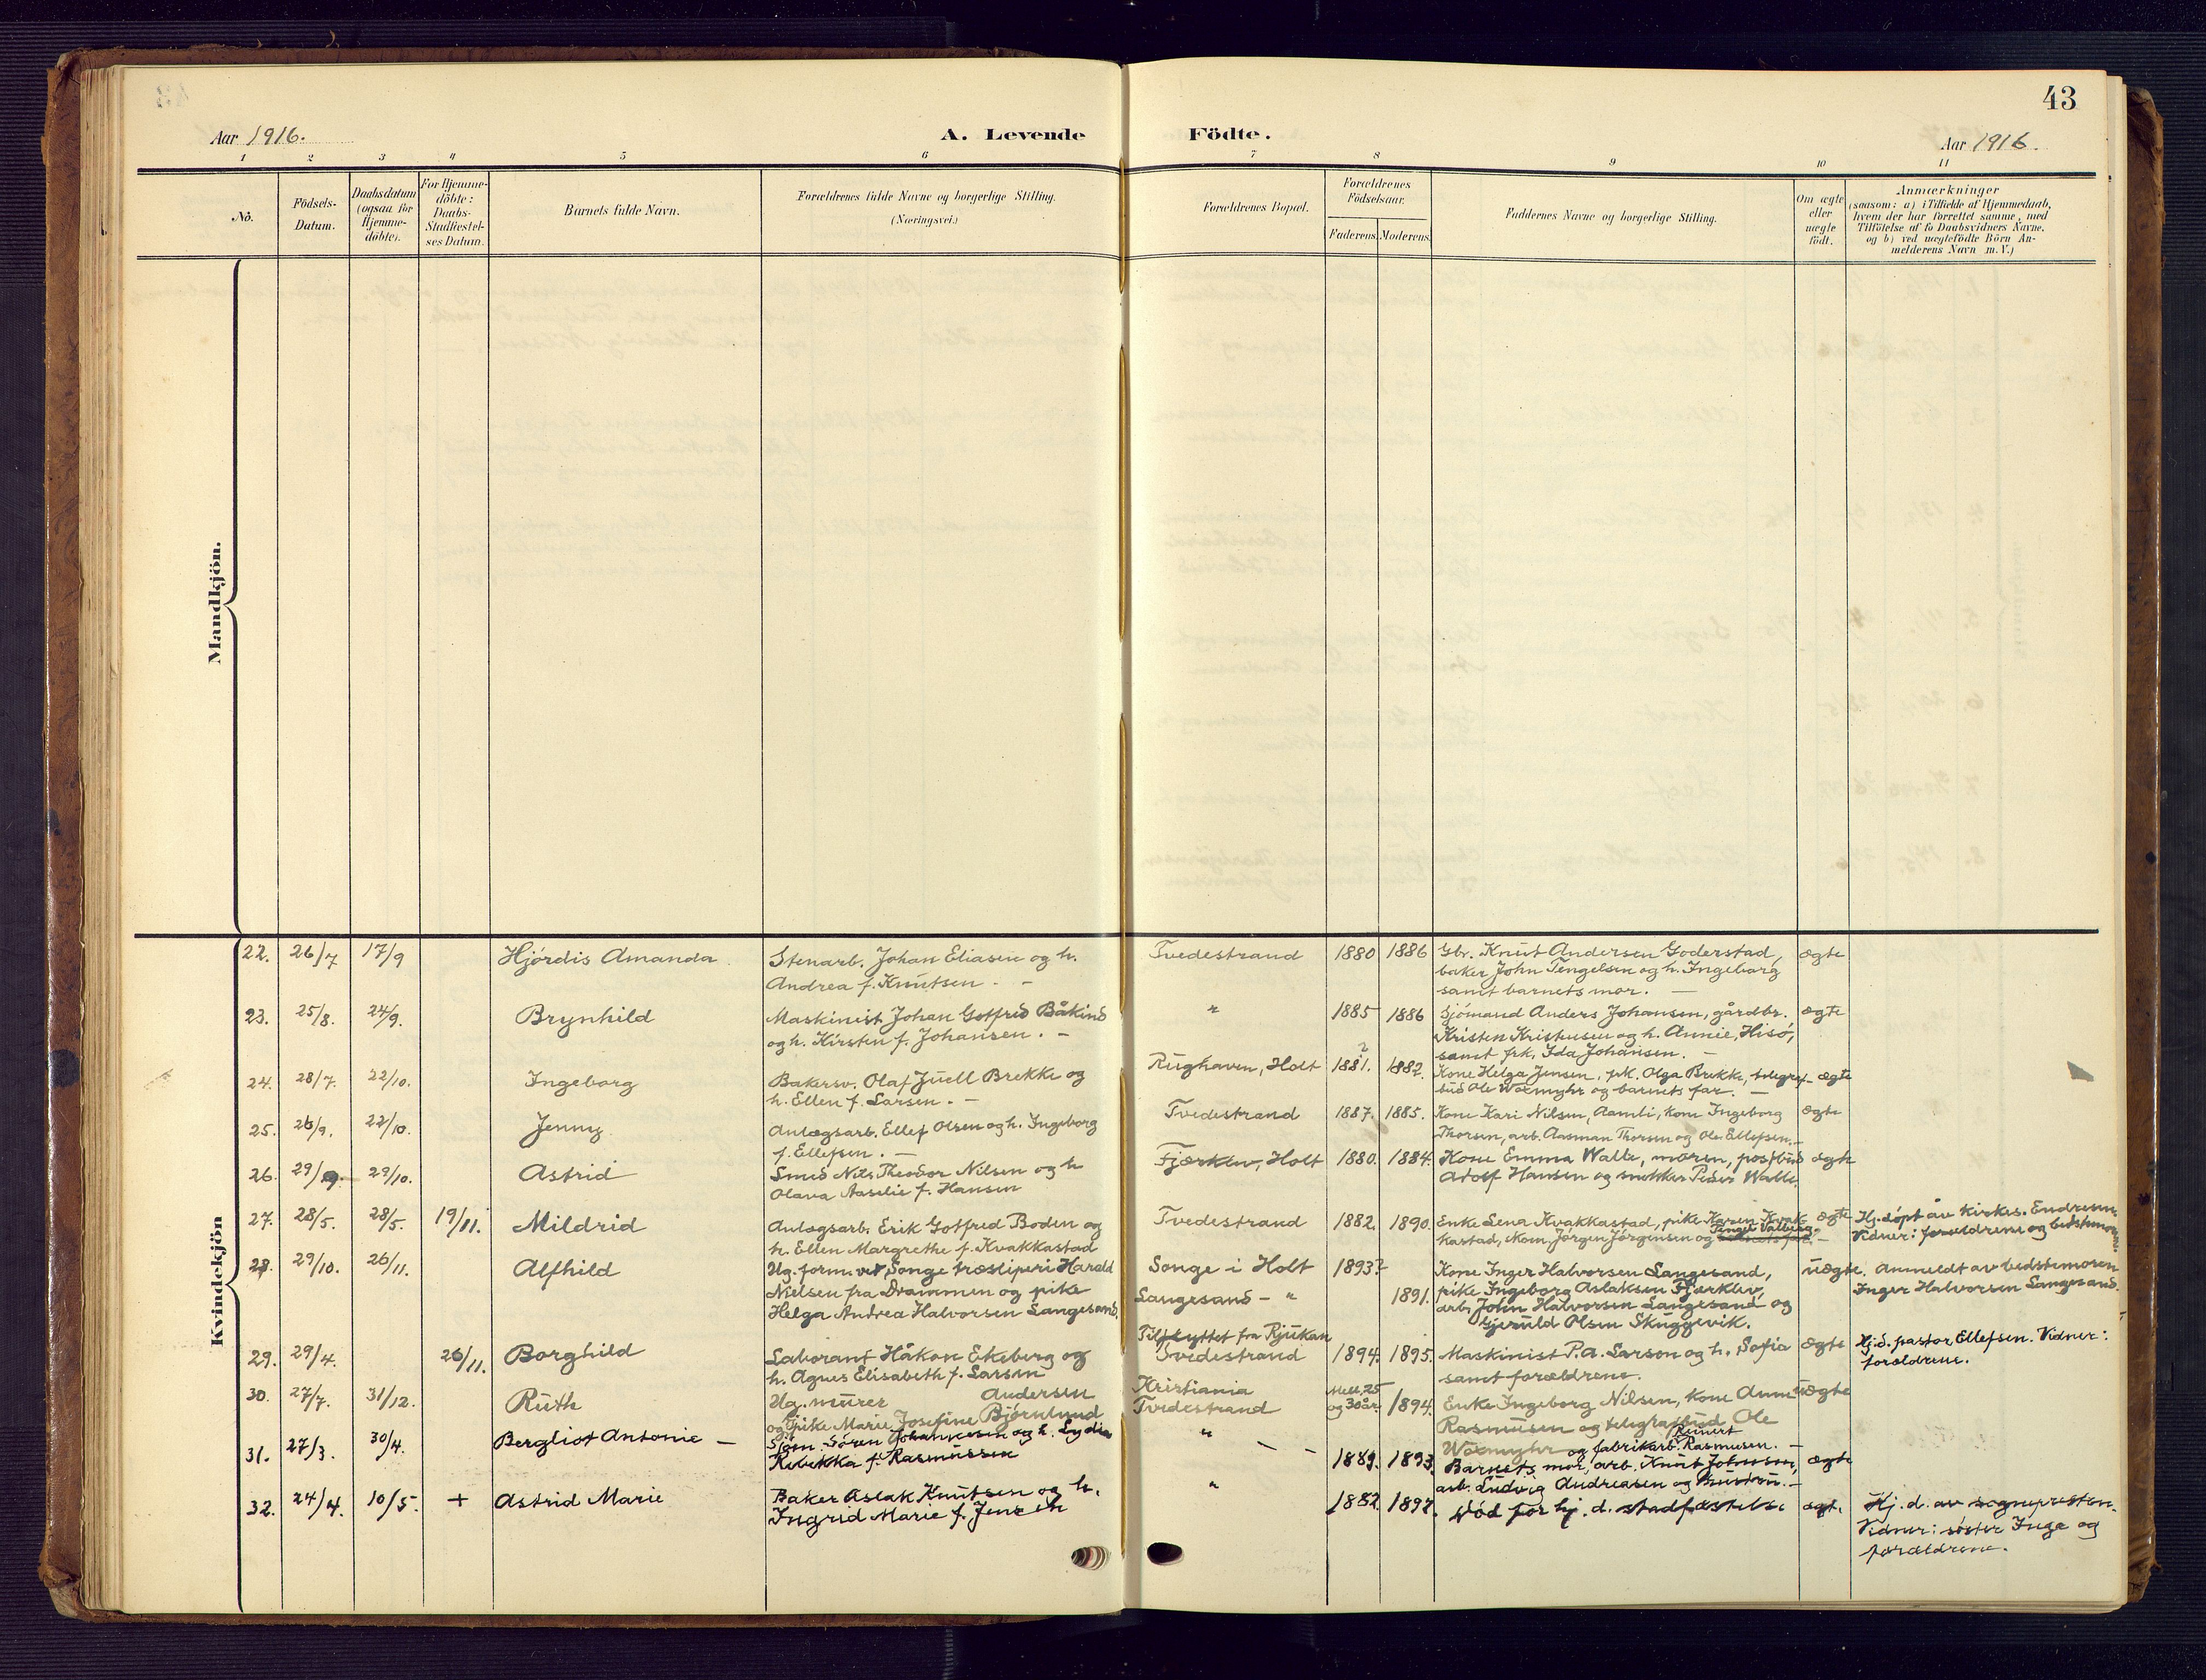 43
Aar 1916.
A. Levende Födte.
Aar 1916.
1 2 3 4 5 6 7 8 9 10 11
No.
Födsels-
Datum.
Daabsdatum
(ogsaa for
Hjemme-
döbte).
For Hjemme-
döbte:
Daabs-
Stadfæstel-
ses Datum.
Barnets fulde Navn.
Forældrenes fulde Navne og borgerlige Stilling.
(Næringsvei.)
Forældrenes Bopæl.
Forældrenes
Födselsaar.
Faderens. Moderens.
Faddernes Navne og borgerlige Stilling.
Om ægte
eller
uægte
födt.
Anmærkninger
(saasom: a) i Tilfælde af Hjemmedaab,
hvem der har forrettet samme, med
Tilföielse af to Daabsvidners Navne,
og b) ved uægtefödte Börn An-
melderens Navn m. V.)
Mandkjön.
Kvindekjön
22. 26/7 17/9 Hjördis Amanda
Stenarb. Johan Eliasen og h.
Andrea f. Knutsen. —
Tvedestrand 1880 1886
Gbr. Knut Andersen Goderstad,
baker John Tengelsen og h. Ingeborg
samt barnets mor. —
ægte
23. 25/8. 24/9. Brynhild
Maskinist Johan Gotfred Båkind
og h. Kirsten f. Johansen. —
" 1885 1886
Sjömand Anders Johansen, gårdbr.
Kristen Kristensen og h. Annie, Hisö,
samt frk. Ida Johansen. —
ægte
24. 28/7. 22/10. Ingeborg
Bakersv. Olaf Juell Brekke og
h. Ellen f. Larsen. —
Rughaven, Holt 1881. 1882.
Kone Helga Jensen, pk. Olga Brekke, telegraf-
bud Ole Woxmyhr og barnets far. —
ægte
25. 26/9. 22/10. Jenny
Anlægsarb. Ellef Olsen og h. Ingeborg
f. Ellefsen. —
Tvedestrand 1887. 1885.
Kone Kari Nilsen, Aamli, kone Ingeborg
Thorsen, arb. Aasman Thorsen og Ole Ellefsen. —
ægte
26. 29/9. 29/10. Astrid
Smed Nils Theodor Nilsen og h
Olava Aaselie f. Hansen
Fjærklev, Holt 1880. 1884.
Kone Emma Walle, moren, postbud
Adolf Hansen og snekker Peder Walle.
ægte
27. 28/5. 28/5. 19/11. Mildrid
Anlægsarb. Erik Gotfred Boden og
h. Ellen Margrethe f. Kvakkastad
Tvedestrand 1882. 1890.
Enke Lena Kvakkastad, pike Karen Kvak-
kastad, Jörgen Jörgensen og Tengel Valberg. —
ægte
Hj. döpt av kirkes. Endresen.
Vidner: forældrene og bedstemoren.
28. 29/10. 26/11. Alfhild
Ug. form. ved Songe træsliperi Harald
Nielsen fra Drammen og pike
Helga Andrea Halvorsen Langesand.
Songe i Holt 1893?
Langesand - " 1891.
Kone Inger Halvorsen Langesand,
pike Ingeborg Aslaksen Fjærklev,
arb. John Halvorsen Langesand og
Gjeruld Olsen Skuggevik.
uægte.
Anmeldt av bedstemoren
Inger Halvorsen Langesand.
29. 29/4. 26/11. Borghild
Laborant Håkon Ekeberg og
h. Agnes Elisabeth f. Larsen
Tilflyttet fra Rjukan
Tvedestrand 1894. 1895.
Maskinist P.A. Larson og h. Sofia
samt forældrene.
ægte
Hj.d. pastor Ellefsen. Vidner:
forældrene.
30. 27/7. 31/12. Ruth
Ug. murer Andersen
og pike Marie Josefine Björnlund
Kristiania
Tvedestrand
Mell. 25
og 30 år. 1894.
Enke Ingeborg Nilsen, kone Anne
Rasmussen og telegrafbud Ole
Woxmyhr og fabrikarb. Reinert Rasmusen. —
uægte
31. 27/3. 30/4. Bergliot Antonie —
Sjöm. Sören Johannesen og h. Lydia
Rebekka f. Rasmussen
" — — 1889. 1893.
Barnets mor, arb. Knut Johnsen,
arb. Ludvig Andreasen og hustru. —
ægte
32. 24/4. 10/5. + Astrid Marie
Baker Aslak Knutsen og h.
Ingrid Marie f. Jensen
" 1882. 1897.
Död för hj. d. stadfæstelse
ægte.
Hj. d. av sognepresten.
Vidner: söster Inga og
forældrene.